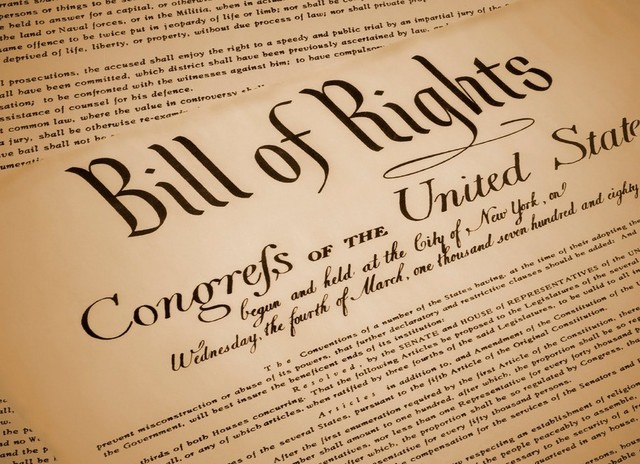 persons or things to be
be held to answer for a capital, or otherwise
the land or Naval forces, or in the Militia, when in
same offence to be twice put in jeopardy of life or limb; nor shall be
deprived of life, liberty, or property, without due process of law; nor shall private
l prosecutions, the accused shall enjoy the right to a speedy and public trial by an impartial jury of the
all have been committed, which district shall have been previously ascertained by law,
sation; to be confronted with the witnesses against him; to have compulsory
ssistance of counsel for his defence.
common law, where the value in controversy shall
a jury, shall be otherwise re-exami
ve bail shall not be
numerati
Bill of Rights
Congreſs OF THE United State
begun and held at the City of New York, on
Wednesday, the fourth of March, one thousand seven hundred and eighty
The Conventions of a number of the States having, at the time of their adopting the
prevent misconstruction or abuse of its powers, that further declaratory and restrictive clauses should be added: And
the Government, will best insure the beneficent ends of its institution;
Resolved, by the SENATE and HOUSE of REPRESENTATIVES of the UN
thirds of both Houses concurring. That the following Articles be proposed to the Legislatures of the several
all, or any of which articles, when ratified by three fourths of the said Legislatures, to be valid to all
Articles in addition to, and Amendment of the Constitution of the
of the several States, pursuant to the fifth Article of the Original Constitution.
After the first enumeration required by the first Article of the Constitution, there
number shall amount to one hundred, after which, the proportion shall be so
less than one Representative for every forty thousand
after which, the proportion shall be so regulated by Congress, that
Representative for every fifty thousand
compensation for the services of the Senators and
respecting an establishment of religion
the people peaceably to assemble